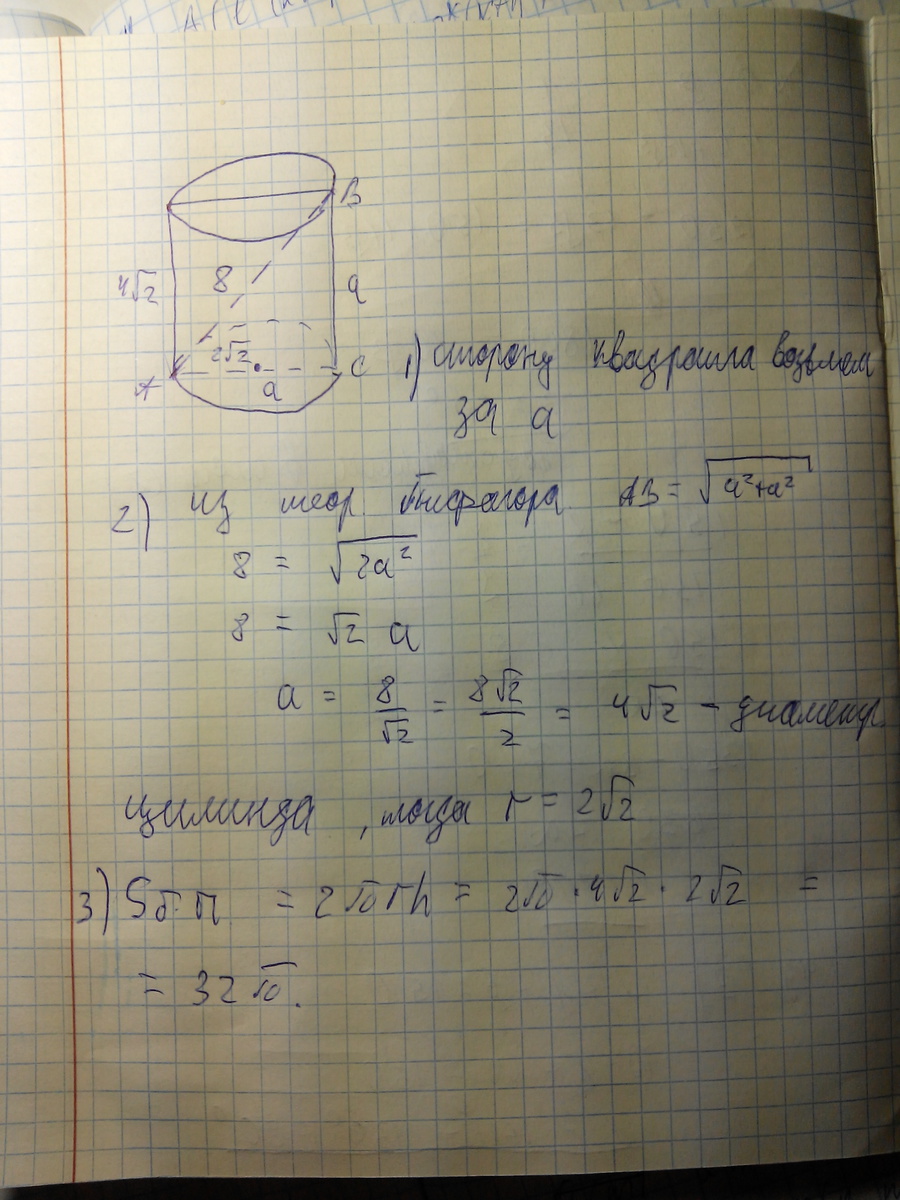 B
4√2
8
a
2√2
A
a
C
1) сторону квадрата возьмем
за a
2) из теор. Пифагора AB = √a²+a²
8 = √2a²
8 = √2 a
a = 8/√2 = 8√2/2 = 4√2 – диаметр
цилинда, тогда r = 2√2
3) Sб.п. = 2πrh = 2π·4√2·2√2 =
= 32π.